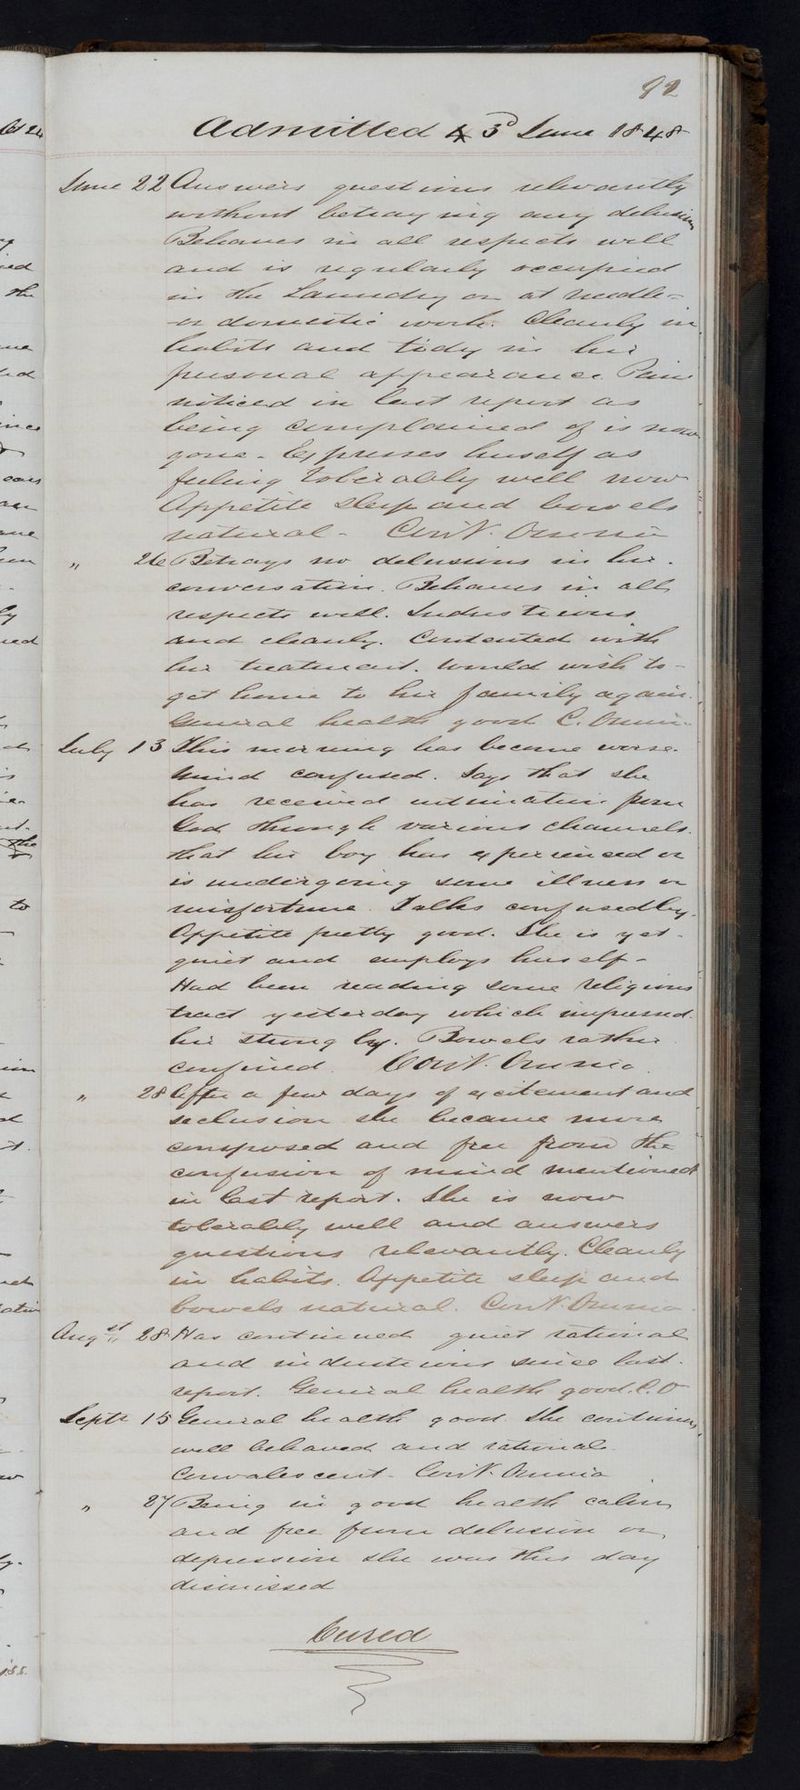 92
Admitted 3d June 1848
June 22 Answers questions relevantly
without betraying any delusion
Behaves in all respects well
and is regularly occupied
in the Laundry or at needle-
or domestic work. Cleanly in
habits and tidy in her
personal appearance. Pain
noticed in last report as
being complained of is now
gone. Expresses herself as
feeling tolerably well now
Appetite sleep and bowels
natural - Contr. Omnia
" 26 Betrays no delusions in her
conversation. Behaves in all
respects well. Industrious
and cleanly. Contented with
her treatment. Would wish to
get home to her family again.
General health good C. Omnia
July 13 This morning has become worse.
Mind confused. Says that she
has received intimation from
God through various channels
that her boy has experienced or
is undergoing some illness or
misfortune. Talks confusedly.
Appetite pretty good. She is yet
quiet and employs herself -
Had been reading some religious
tract yesterday which impressed
her strongly. Bowels rather
confined. Contr. Omnia
" 28 After a few days of excitement and
seclusion she became more
composed and free from the
confusion of mind mentioned
in last report. She is now
tolerably well and answers
questions relevantly. Cleanly
in habits. Appetite sleep and
bowels natural. Contr. Omnia
Augst 28 Has continued quiet rational
and industrious since last
report. General health good. C.O
Septr 15 General health good. She continues
well behaved and rational.
Convalescent - Contr. Omnia
" 27 Being in good health calm
and free from delusion or
depression she was this day
dismissed
Cured